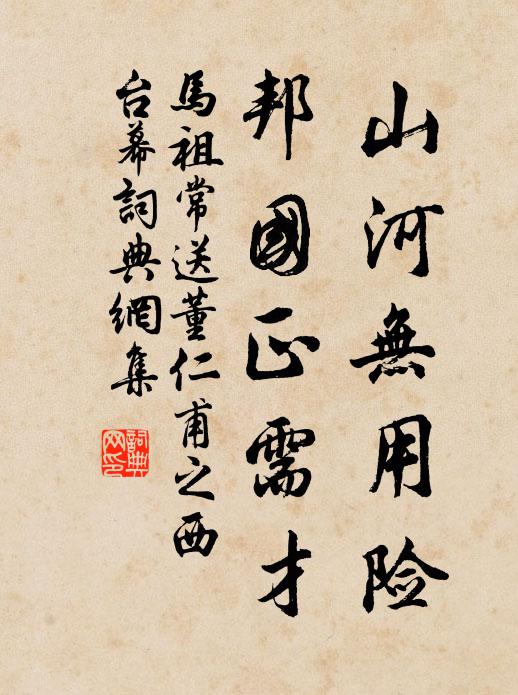 山河無用险
邦國正需才
馬祖常送董仁甫之西
台幕詞典網集
詞典网印